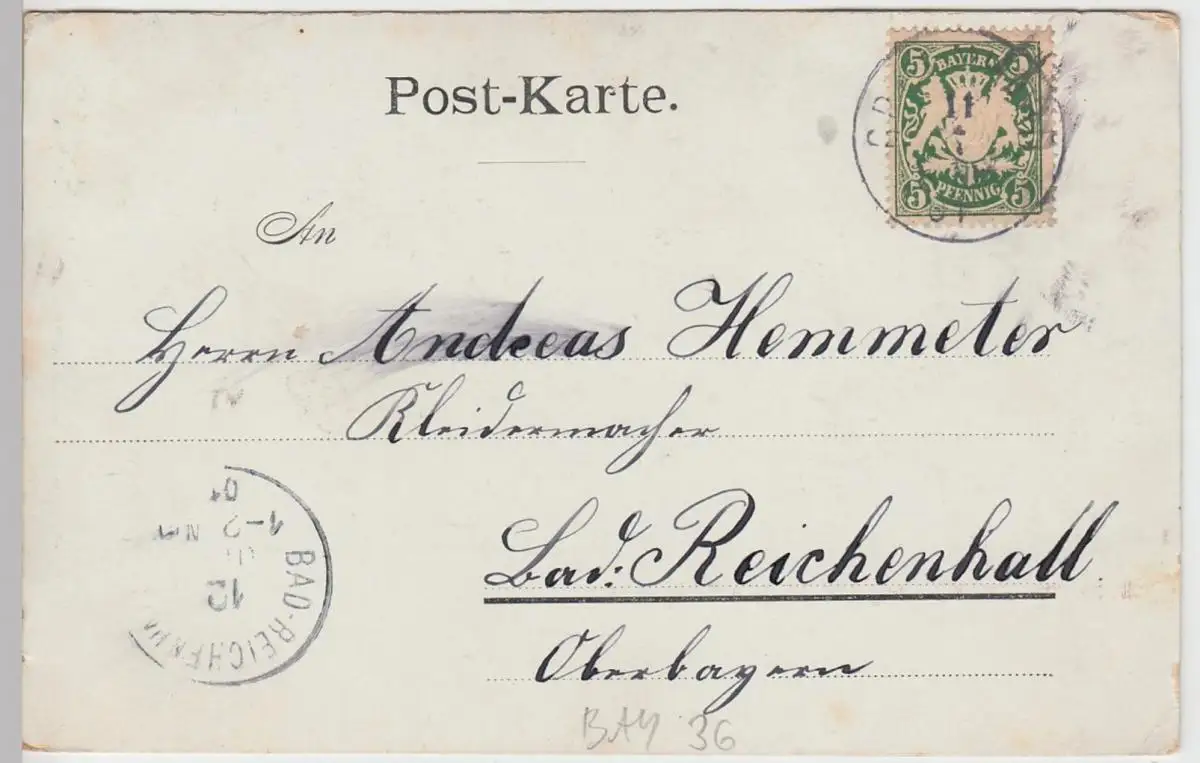 Post-Karte.
5 BAYERN 5
5 PFENNIG 5
11
7
01
An
Herrn Andreas Hemmeter
Kleidermacher
Bad: Reichenhall
Oberbayern
BAD-REICHENHA
12
1-2 Nm
01
BAY 36